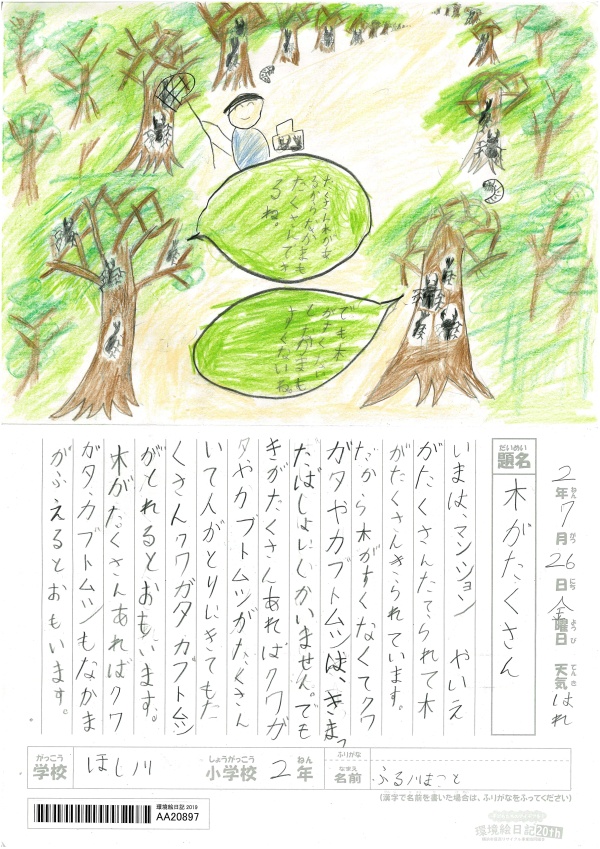 たくさん木があ
るからなかまも
たくさん
るね。
でも木
なかまも
すくないね。
2年7月26日金曜日 天気はれ
ねん がつ にち ようび てんき
だいめい
題名
木がたくさん
いまは、マンション やいえ
がたくさんたてられて木
がたくさんきられています。
だから木がすくなくてクワ
ガタやカブトムシは、きまっ
たばしょにしかいません。でも
きがたくさんあればクワガ
タやカブトムシがたくさん
いて人がとりにきてもた
くさんクワガタカブトムシ
がとれるとおもいます。
木がたくさんあればクワ
ガタ、カブトムシもなかま
がふえるとおもいます。
がっこう しょうがっこう ねん ふりがな
学校 ほし川 小学校 2年
なまえ
名前 ふる川まこと
(漢字で名前を書いた場合は、ふりがなをふってください)
環境絵日記 2019
AA20897
環境絵日記 20th